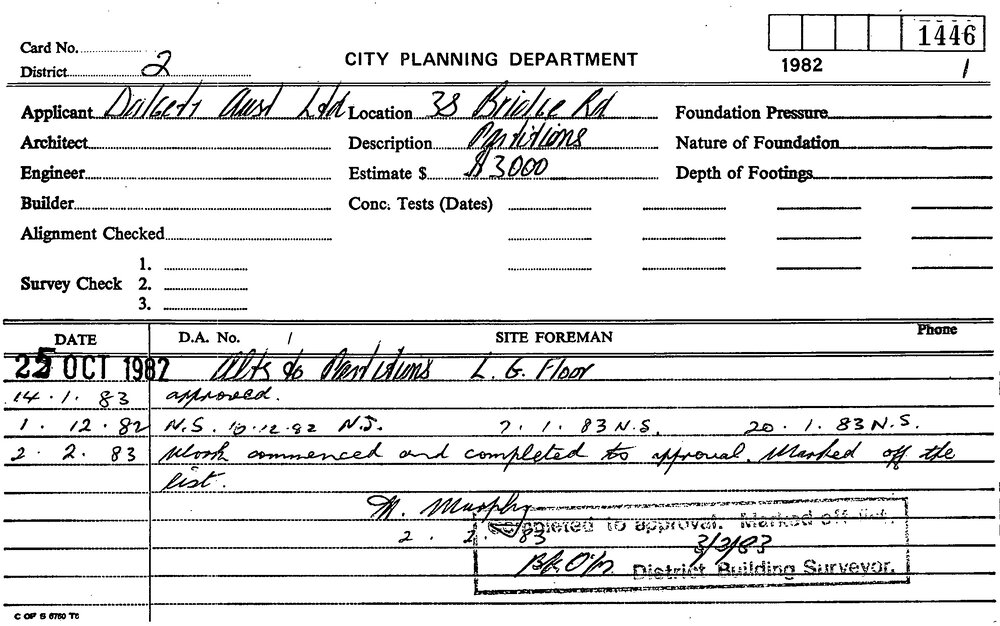 1446
Card No.
CITY PLANNING DEPARTMENT
1982 1
District 2
Applicant Dalgety Aust Ltd Location 38 Bridge Rd Foundation Pressure
Architect Description Partitions Nature of Foundation
Engineer Estimate $ $3000 Depth of Footings
Builder Conc. Tests (Dates)
Alignment Checked
1.
Survey Check 2.
3.
DATE D.A. No. / SITE FOREMAN Phone
25 OCT 1982 Alts to Partitions L. G. Floor
14.1.83 approved.
1.12.82 N.S. 10.12.82 N.S. 7.1.83 N.S. 20.1.83 N.S.
2.2.83 Work commenced and completed to approval. Marked off the
list.
M. Murphy
2.2.83
Completed to approval. Marked off list.
3/2/83
District Building Surveyor.
C OF S 6760 TC